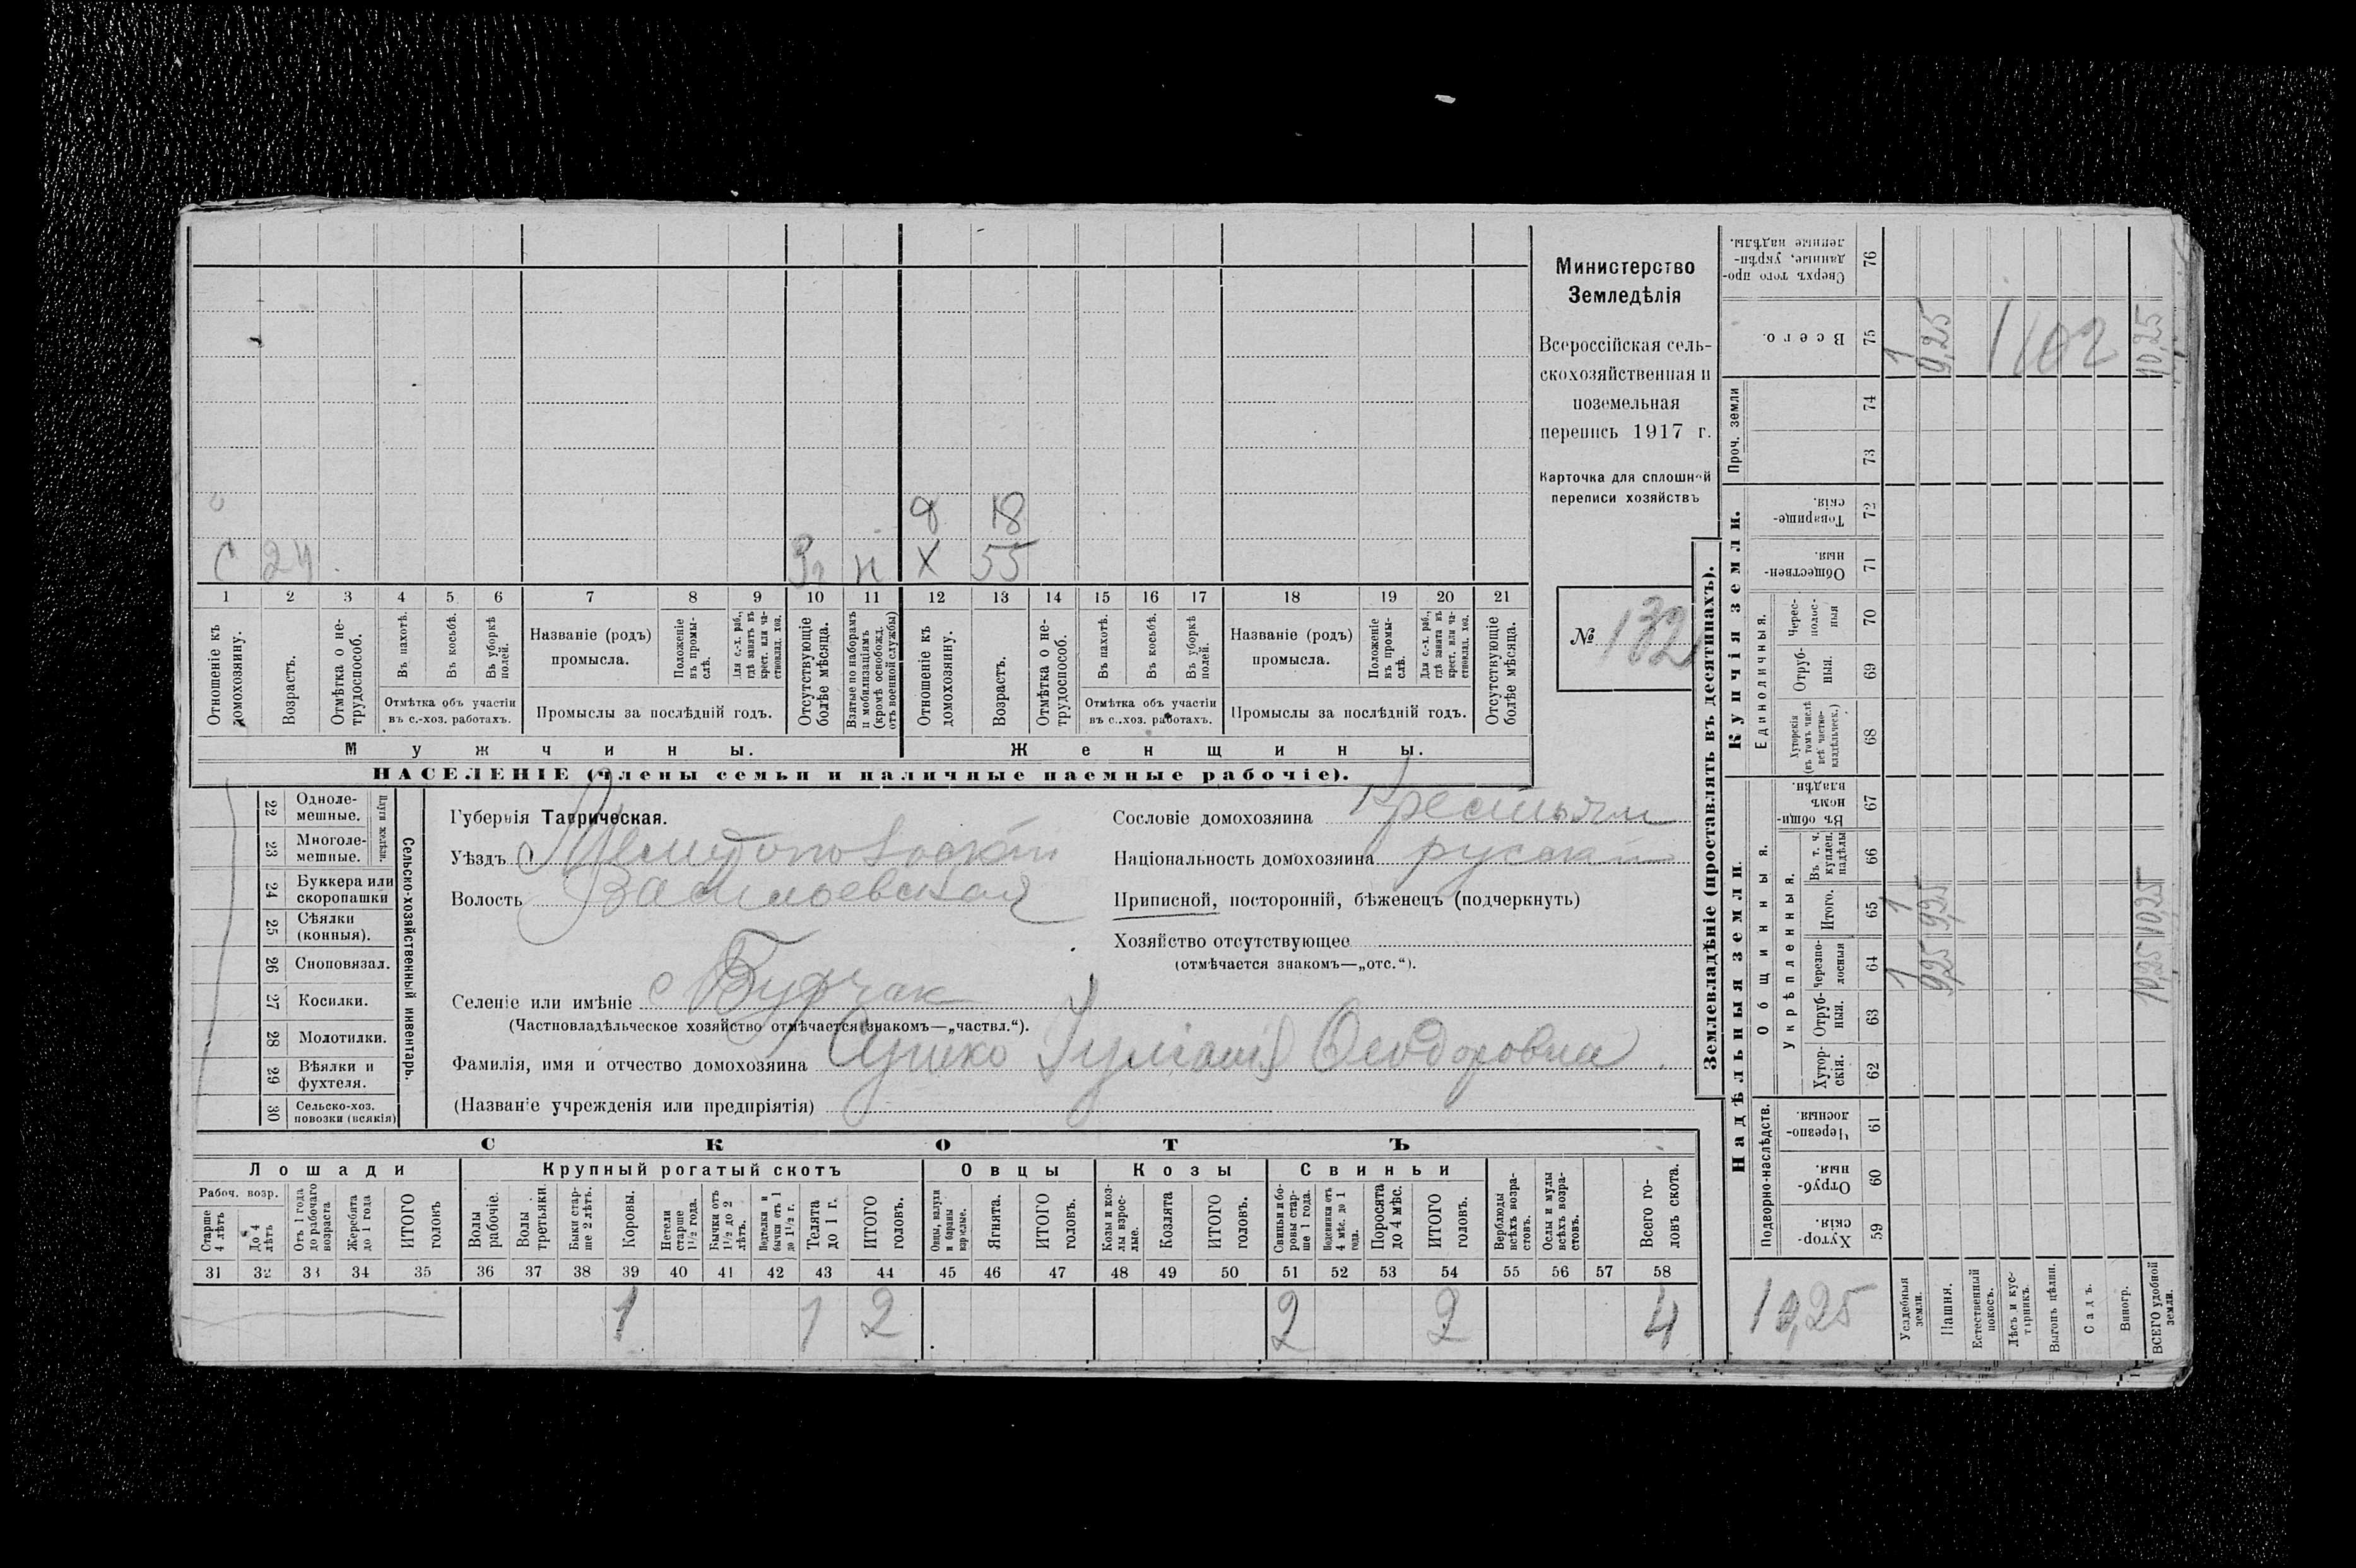 Министерство
Земледѣлія
Всероссійская сель-
скохозяйственная и
поземельная
перепись 1917 г.
Карточка для сплошной
переписи хозяйствъ
№ 132
8 18
С 24 н Х 55
1 2 3 4 5 6 7 8 9 10 11 12 13 14 15 16 17 18 19 20 21
Отношеніе къ домохозяину.
Возрастъ.
Отмѣтка о не-трудоспособ.
Въ пахотѣ.
Въ косьбѣ.
Въ уборкѣ полей.
Отмѣтка объ участіи
въ с.-хоз. работахъ.
Названіе (родъ)
промысла.
Положеніе въ промы-слѣ.
Для с.-х. раб., гдѣ занятъ въ крест. или ча-стновлад. хоз.
Промыслы за послѣдній годъ.
Отсутствующіе болѣе мѣсяца.
Взятые по наборамъ и мобилизаціямъ (кромѣ освобожд. отъ военной службы)
Отношеніе къ домохозяину.
Возрастъ.
Отмѣтка о не-трудоспособ.
Въ пахотѣ.
Въ косьбѣ.
Въ уборкѣ полей.
Отмѣтка объ участіи
въ с.-хоз. работахъ.
Названіе (родъ)
промысла.
Положеніе въ промы-слѣ.
Для с.-х. раб., гдѣ занята въ крест. или ча-стновлад. хоз.
Промыслы за послѣдній годъ.
Отсутствующіе болѣе мѣсяца.
Мужчины.
Женщины.
НАСЕЛЕНІЕ (члены семьи и наличные наемные рабочіе).
Сельско-хозяйственный инвентарь.
Плуги желѣзн.
22 Одноле-мешные.
23 Многоле-мешные.
24 Буккера или скоропашки
25 Сѣялки (конныя).
26 Сноповязал.
27 Косилки.
28 Молотилки.
29 Вѣялки и фухтеля.
30 Сельско-хоз. повозки (всякія)
Губернія Таврическая.
Уѣздъ Мелитопольскій
Волость Васильевская
Селеніе или имѣніе с Бурчак
(Частновладѣльческое хозяйство отмѣчается знакомъ—„частвл.“).
Фамилія, имя и отчество домохозяина Феодоровна
(Названіе учрежденія или предпріятія)
Сословіе домохозяина крестьян
Національность домохозяина русскій
Приписной, посторонній, бѣженецъ (подчеркнуть)
Хозяйство отсутствующее
(отмѣчается знакомъ—„отс.“).
СКОТЪ
Лошади
Крупный рогатый скотъ
Овцы
Козы
Свиньи
Рабоч. возр.
Старше 4 лѣтъ
До 4 лѣтъ
Отъ 1 года до рабочаго возраста
Жеребята до 1 года
ИТОГО головъ
Волы рабочіе.
Волы третьяки.
Быки стар-ше 2 лѣтъ.
Коровы.
Нетели старше 1 1/2 года.
Бычки отъ 1 1/2 до 2 лѣтъ.
Подтелки и бычки отъ 1 до 1 1/2 г.
Телята до 1 г.
ИТОГО головъ.
Овцы, валухи и бараны взрослые.
Ягнята.
ИТОГО головъ.
Козы и коз-лы взрос-лые.
Козлята
ИТОГО головъ.
Свиньи и бо-ровы стар-ше 1 года.
Подсвинки отъ 4 мѣс. до 1 года.
Поросята до 4 мѣс.
ИТОГО головъ.
Верблюды всѣхъ возра-стовъ.
Ослы и мулы всѣхъ возра-стовъ.
Всего го-ловъ скота.
31 32 33 34 35 36 37 38 39 40 41 42 43 44 45 46 47 48 49 50 51 52 53 54 55 56 57 58
1 1 2 2 2 4
Землевладѣніе (проставлять въ десятинахъ).
Надѣльныя земли.
Купчія земли.
Проч. земли
Подворно-наслѣдств.
Общинныя.
Укрѣпленныя.
Единоличныя.
Хутор-скія. 59
Отруб-ныя. 60
Черезпо-лосныя. 61
Хутор-скія. 62
Отруб-ныя. 63
Черезпо-лосныя 64
Итого. 65
Въ т. ч. куплен. надѣлы 66
Въ общин-номъ владѣн. 67
Хуторскія (въ томъ числѣ всѣ частно-владѣльческ.) 68
Отруб-ныя. 69
Черес-полос-ныя 70
Обществен-ныя. 71
Товарище-скія. 72
73
74
Всего. 75
Сверхъ того про-данные, укрѣп-ленные надѣлы. 76
Усадебныя земли. 1 1 1
Пашня. 9,25 9,25 9,25
Естественный покосъ.
Лѣсъ и кус-тарникъ.
Выгонъ цѣлин.
Садъ.
Виногр.
ВСЕГО удобной земли. 10,25 10,25 10,25
1102
10,25